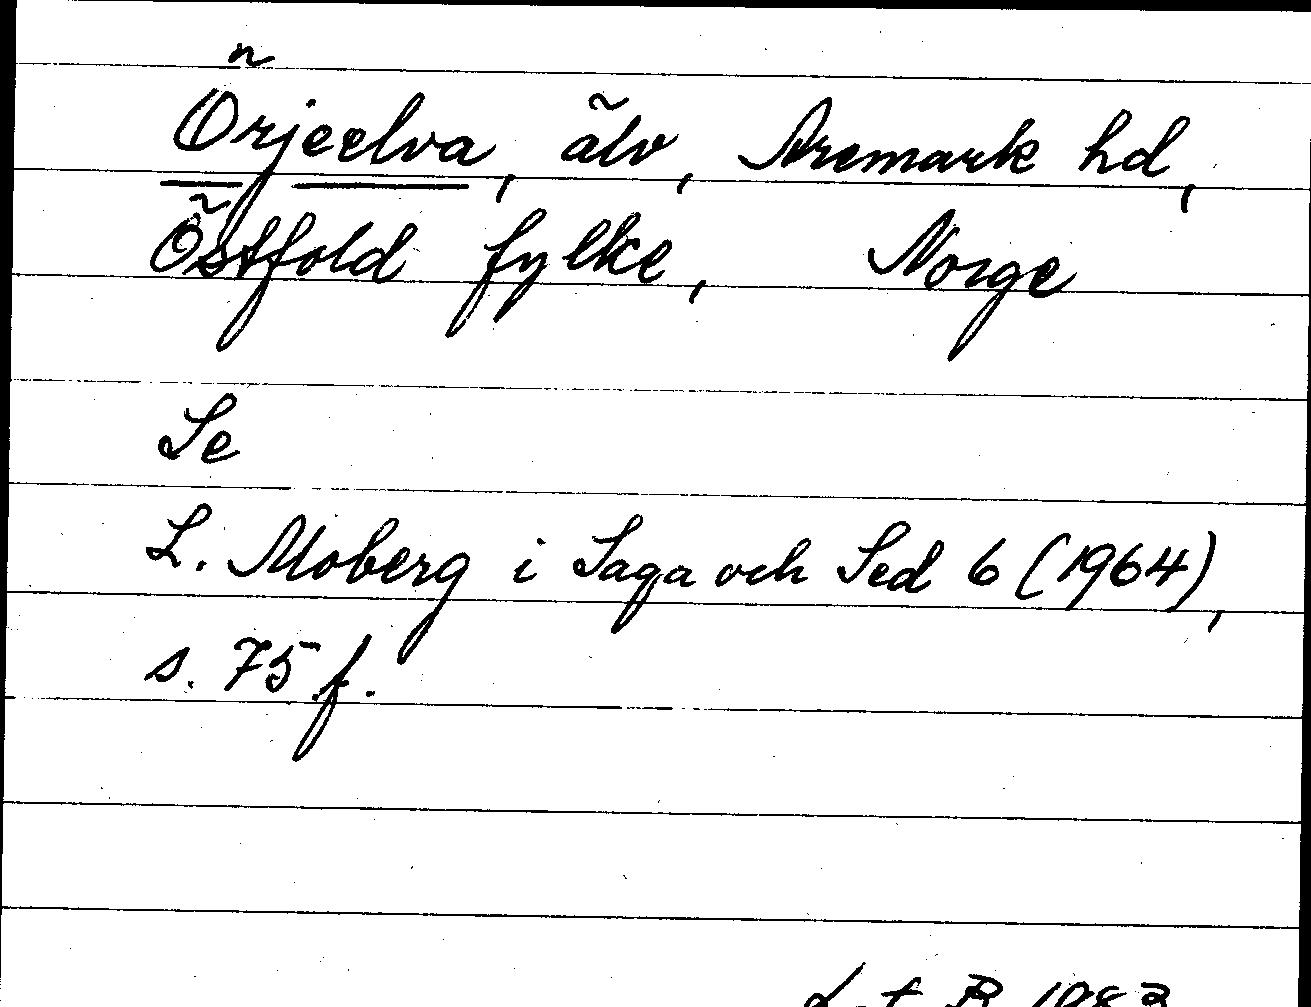 Örjeelva, älv, Aremark hd,
Östfold fylke, Norge
Se
L. Moberg i Saga och Sed 6 (1964),
s. 75 f.